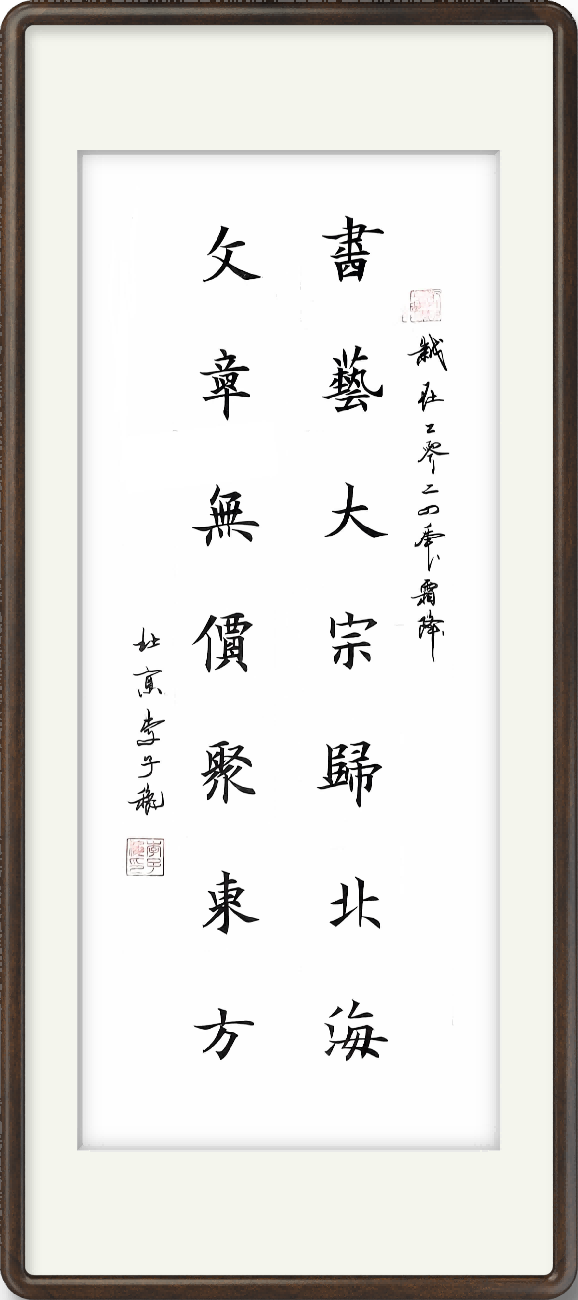 歲在二零二四年霜降
書藝大宗歸北海
文章無價聚東方
北京李子